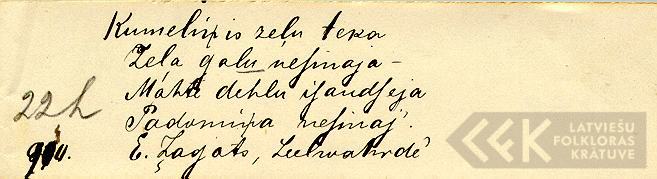 Kumeliņis zelu teka
Zela galu nesinaja –
Mahte dehlu isaudseja
Padomiņa nesinaj.
22h
E. Zagats, Leelwahrdē
LATVIEŠU
FOLKLORAS
KRĀTUVE